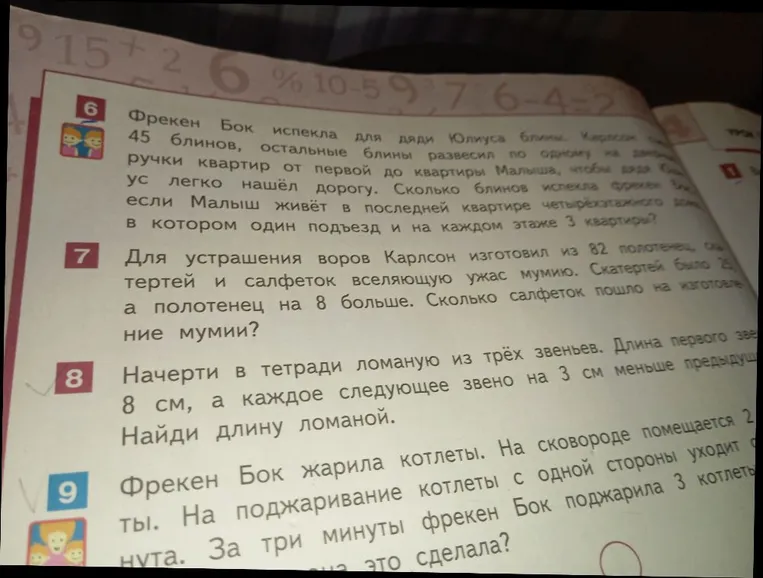 9 15 + 2 6 % 10-5 9 7 6-4=2
6
Фрекен Бок испекла для дяди Юлиуса блины. Карлсон
45 блинов, остальные блины развесил по одному на
ручки квартир от первой до квартиры Малыша, чтобы дядя
ус легко нашёл дорогу. Сколько блинов испекла фрекен Бок,
если Малыш живёт в последней квартире четырёхэтажного
в котором один подъезд и на каждом этаже 3 квартиры?
7
Для устрашения воров Карлсон изготовил из 82 полотенец,
тертей и салфеток вселяющую ужас мумию. Скатертей было
а полотенец на 8 больше. Сколько салфеток пошло на изготовле
ние мумии?
8
Начерти в тетради ломаную из трёх звеньев. Длина первого
8 см, а каждое следующее звено на 3 см меньше
Найди длину ломаной.
9
Фрекен Бок жарила котлеты. На сковороде помещается 2
ты. На поджаривание котлеты с одной стороны уходит
нута. За три минуты фрекен Бок поджарила 3 котлеты
это сделала?
УРОК
1